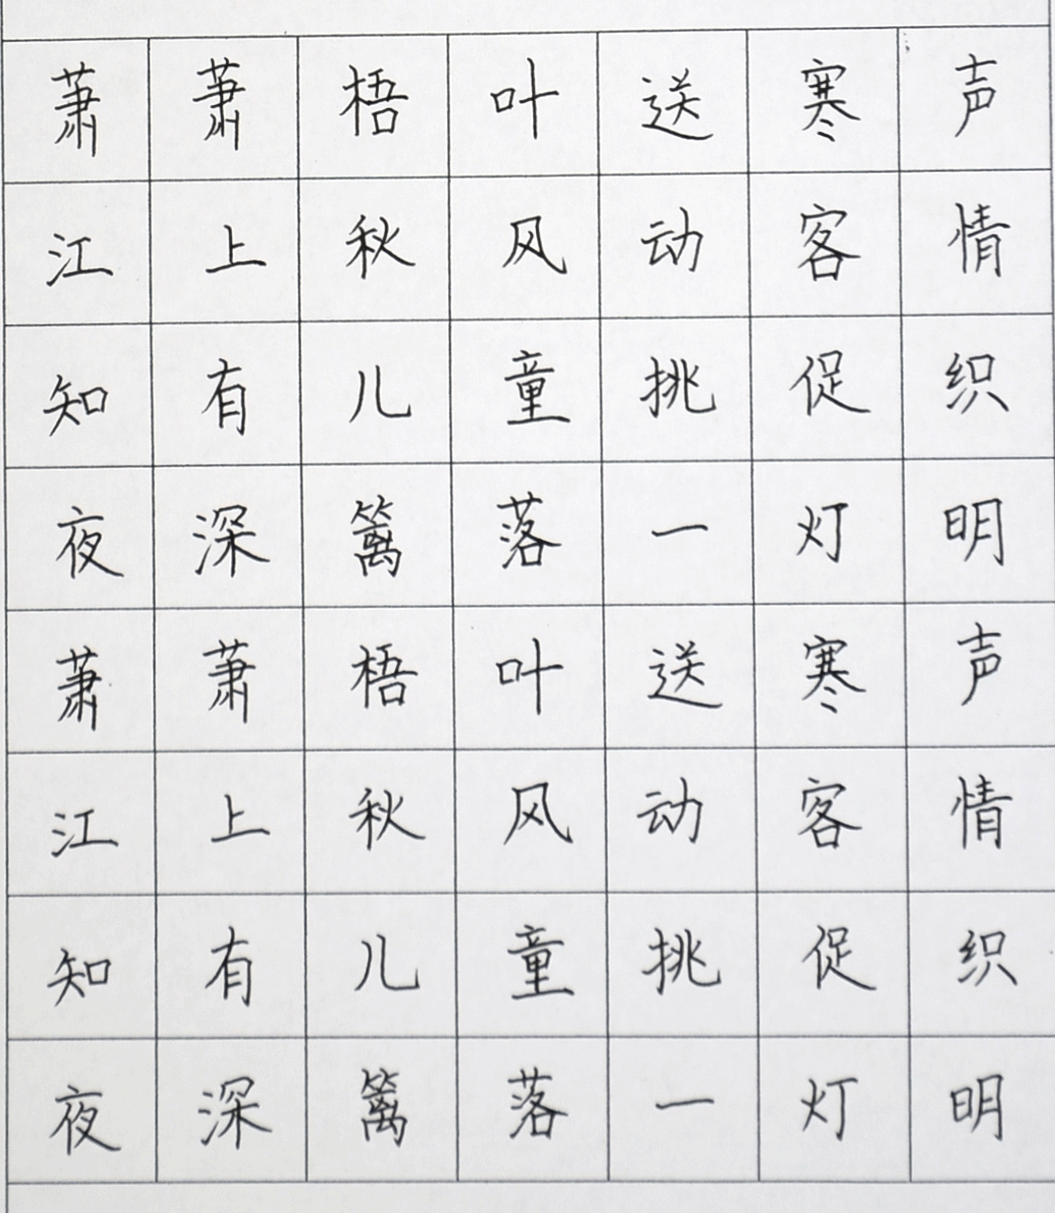 萧萧梧叶送寒声
江上秋风动客情
知有儿童挑促织
夜深篱落一灯明
萧萧梧叶送寒声
江上秋风动客情
知有儿童挑促织
夜深篱落一灯明